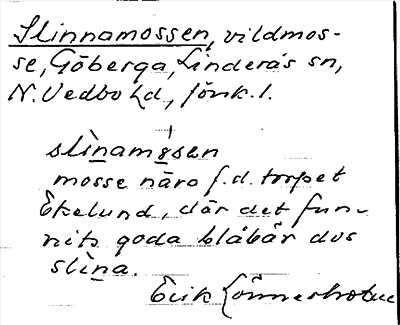 Slinnamossen, vildmos-
se, Göberga, Linderås sn,
N. Vedbo hd, jönk. l.
slìnamȯsen
mosse nära f.d. torpet
Ekelund, där det fun-
nits goda blåbär dvs
slìna.
Erik Lönnesholm